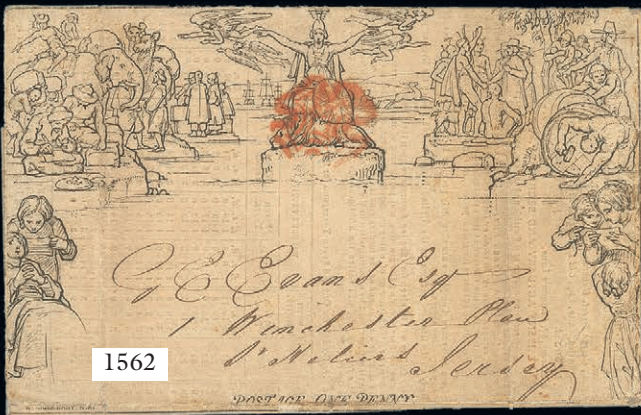 G E Evans Esq
1 Winchester Place
St Heliers Jersey
1562
POSTAGE ONE PENNY